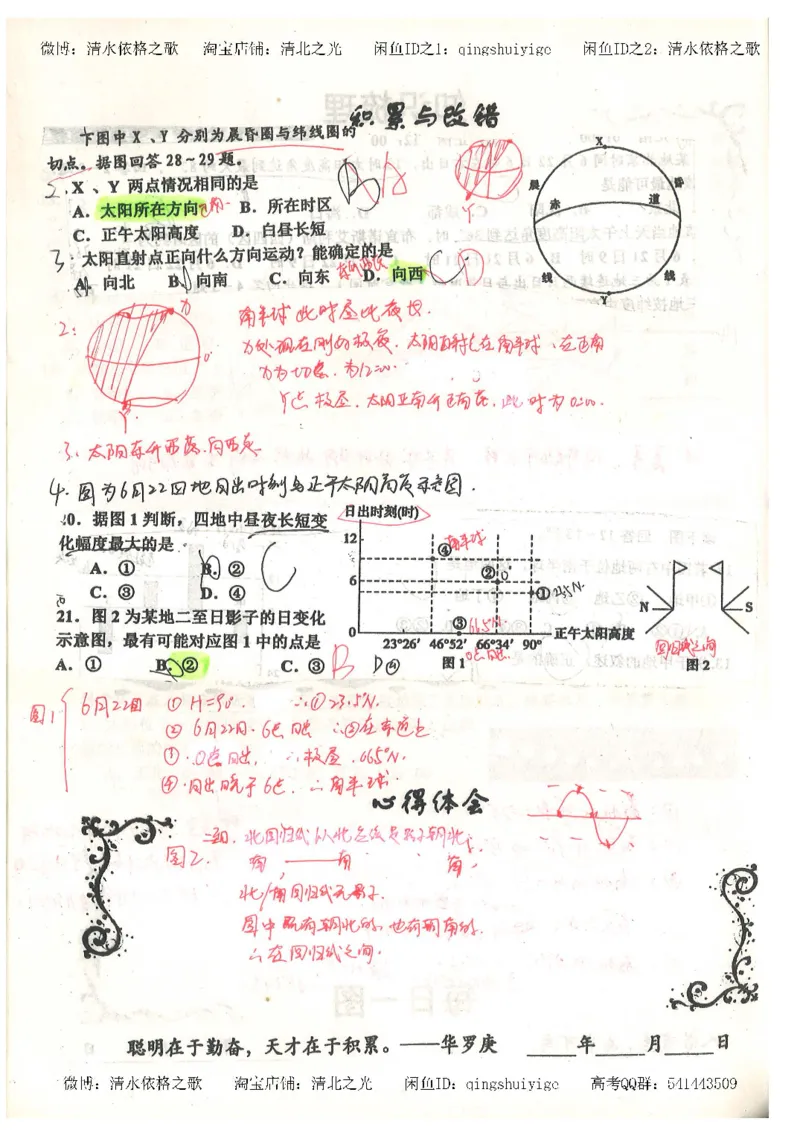 微博：清水依格之歌 淘宝店铺：清北之光 闲鱼ID之1：qingshuiyige 闲鱼ID之2：清水依格之歌
积累与改错
下图中 X 、Y 分别为晨昏圈与纬线圈的
切点。据图回答 28～29 题。
2. X 、Y 两点情况相同的是
A. 太阳所在方向 B. 所在时区
C. 正午太阳高度 D. 白昼长短
3. 太阳直射点正向什么方向运动？能确定的是
A. 向北 B. 向南 C. 向东 D. 向西
X
晨 昏
赤 道
线 线
Y
2：
南半球 此时是极夜
3. 太阳东升西落，向西走
4. 图为6月22四地日出时刻与正午太阳高度示意图.
20. 据图 1 判断，四地中昼夜长短变
化幅度最大的是
A. ① B. ②
C. ③ D. ④
21. 图 2 为某地二至日影子的日变化
示意图，最有可能对应图 1 中的点是
A. ① B. ② C. ③ D ④
日出时刻(时)
12
6
0
④ 南半球
②
① 23.5N.
③ 66.5N
23°26′ 46°52′ 66°34′ 90° 正午太阳高度
图 1
N S
回归线之间
图 2
图1 6月22日 ① H=90°. ∴①23.5N.
② 6月22日. 6点日出 ∴②在赤道上
③ 0点日出, ∴极昼. 66.5°N.
④ 日出晚于6点. ∴南半球.
心得体会
图2.
北/南回归线无影子.
图中既有朝北的, 也有朝南的.
∴在回归线之间.
聪明在于勤奋，天才在于积累。——华罗庚 ____年____月____日
微博：清水依格之歌 淘宝店铺：清北之光 闲鱼ID：qingshuiyige 高考QQ群：541443509